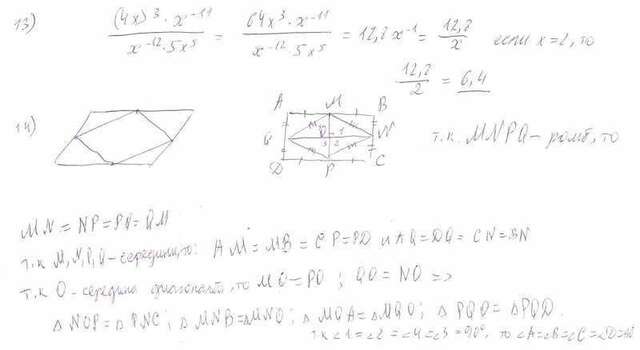 13) (4x)³·x⁻¹¹ / x⁻¹²·5x⁵ = 64x³·x⁻¹¹ / x⁻¹²·5x⁵ = 12,8x⁻¹ = 12,8 / x если x=2, то
12,8 / 2 = 6,4
14)
A M B
Q O 1 N
3 2
D P C
т.к. MNPQ – ромб, то
MN = NP = PQ = QM
т.к M,N,P,Q – середины, то: AM = MB = CP = PD и AQ = DQ = CN = BN
т.к O – середина диагоналей, то MO = PO ; QO = NO =>
△NOP = △PNC ; △MNB = △MNO ; △MQA = △MQO ; △PQO = △PQD.
т.к ∠1 = ∠2 = ∠4 = ∠3 = 90°, то ∠A = ∠B = ∠C = ∠D = 90